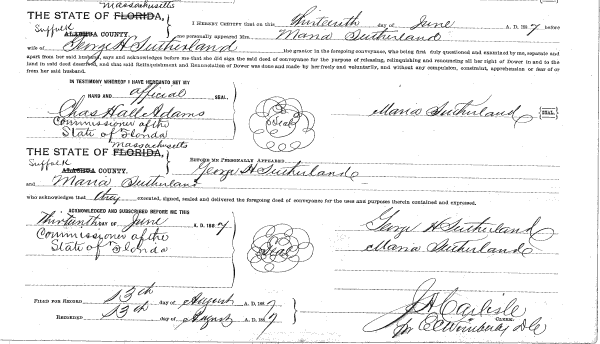 Massachusetts
THE STATE OF FLORIDA,
Suffolk
ALACHUA COUNTY.
I HEREBY CERTIFY that on this thirteenth day of June A. D. 1887 before
me personally appeared Mrs. Maria Sutherland
wife of George H Sutherland the grantor in the foregoing conveyance, who being first duly questioned and examined by me, separate and
apart from her said husband, says and acknowledges before me that she did sign the said deed of conveyance for the purpose of releasing, relinquishing and renouncing all her right of Dower in and to the
land in said deed described, and that said Relinquishment and Renunciation of Dower was done and made by her freely and voluntarily, and without any compulsion, constraint, apprehension or fear of or
from her said husband.
IN TESTIMONY WHEREOF I HAVE HEREUNTO SET MY
HAND AND official SEAL.
Chas Hall Adams
Commissioner of the
State of Florida
Seal
Maria Sutherland SEAL.
Massachusetts
THE STATE OF FLORIDA,
Suffolk
ALACHUA COUNTY.
BEFORE ME PERSONALLY APPEARED
George H Sutherland
and Maria Sutherland
who acknowledges that they executed, signed, sealed and delivered the foregoing deed of conveyance for the uses and purposes therein contained and expressed.
ACKNOWLEDGED AND SUBSCRIBED BEFORE ME THIS
Thirteenth day of June A. D. 1887
Commissioner of the
State of Florida
Seal
George H Sutherland
Maria Sutherland
FILED FOR RECORD 13th day of August A. D. 1887
RECORDED 13th day of August A. D. 1887
J A Carlisle
CLERK.
pr